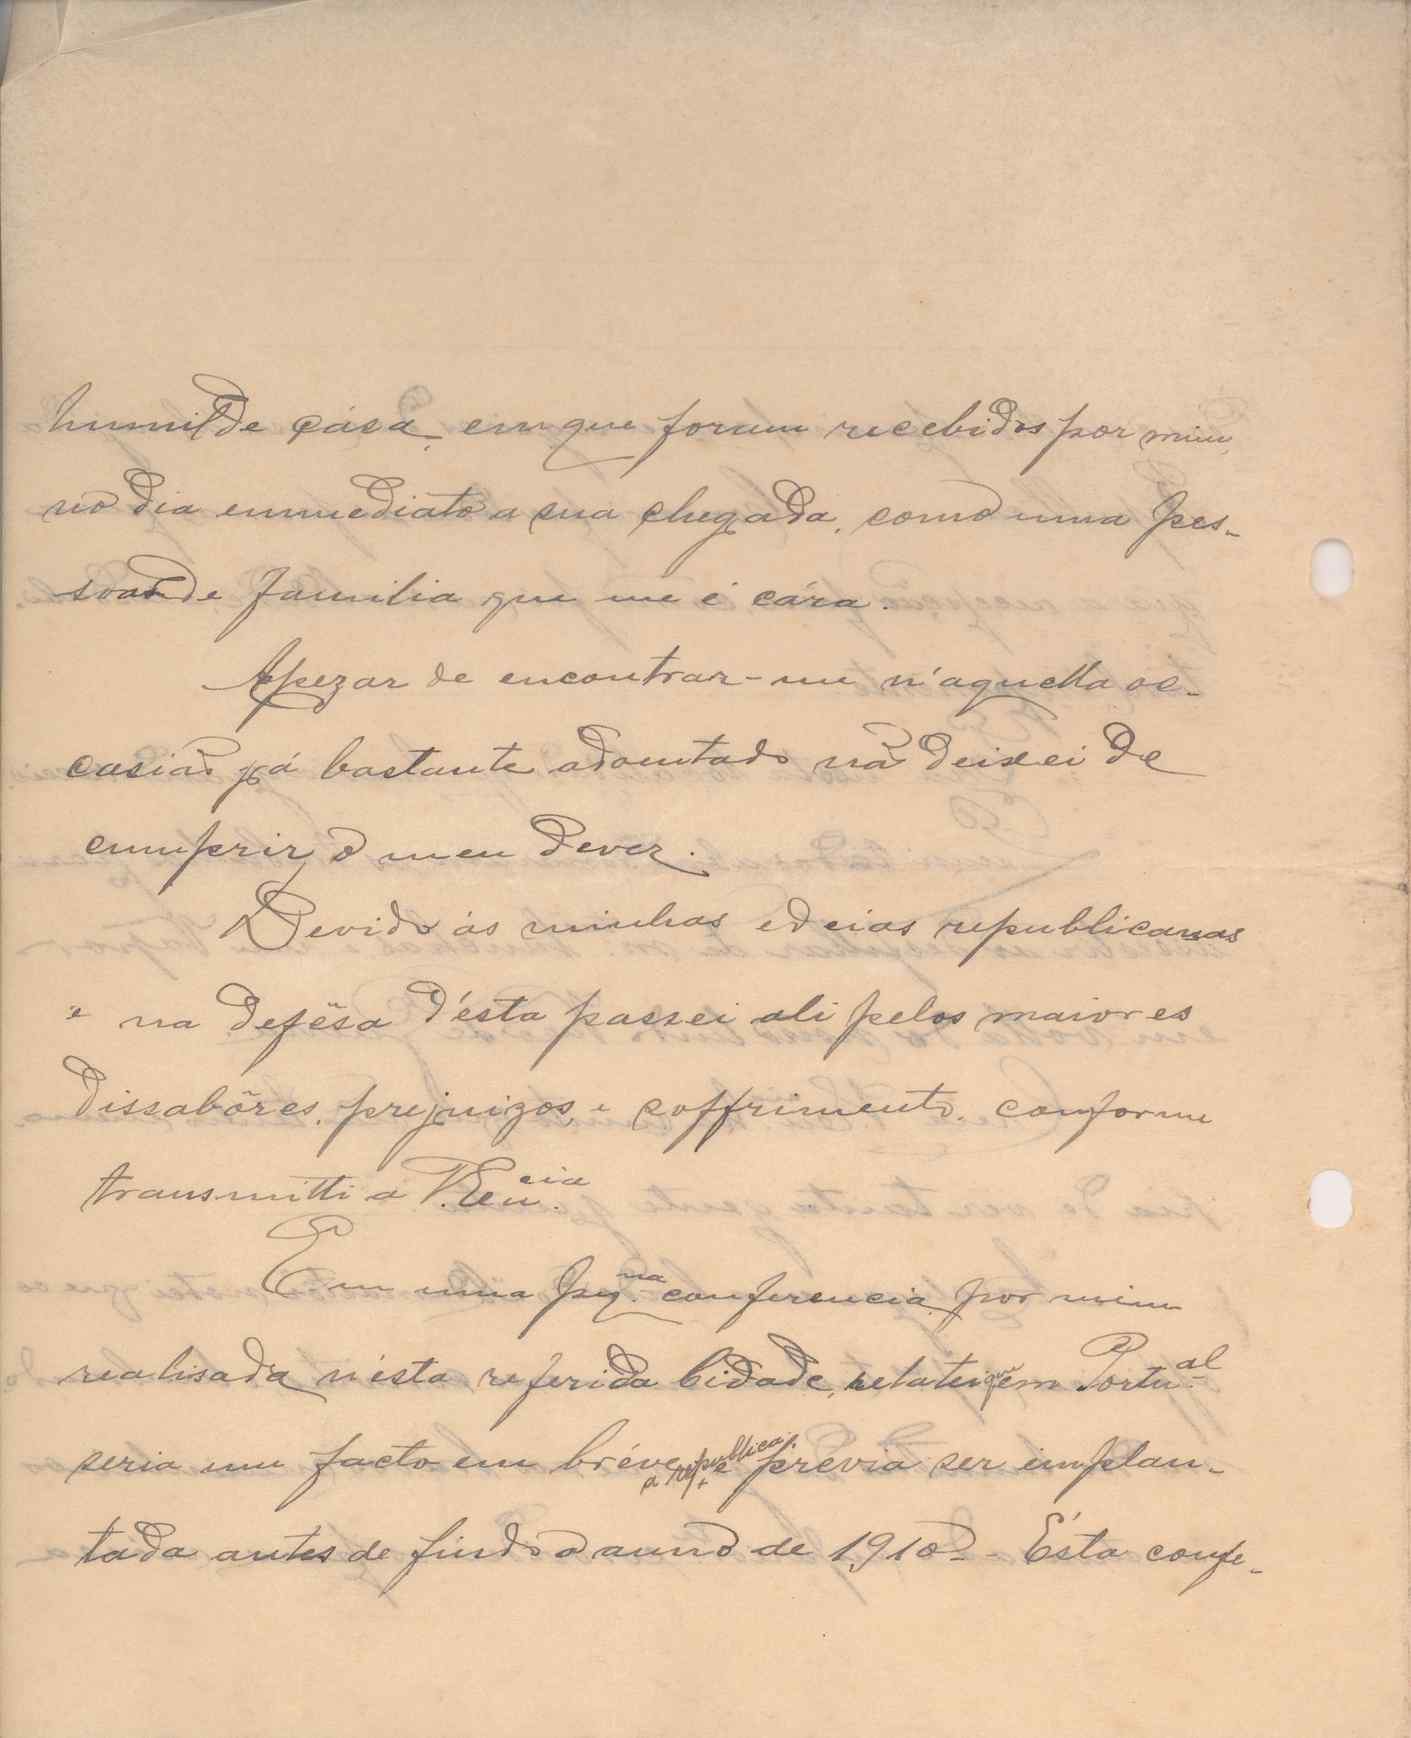 humilde cása, em que foram recebidos por mim,
no dia emmediato a sua chegada, como uma pes-
soa de familia que me é cára.
Apezar de encontrar-me n'aquella oc-
casião já bastante adoentado não deixei de
cumprir o meu dever.
Devido ás minhas edeias republicanas
e na defêsa d'ésta passei ali pelos maiores
dissabôres, prejuizos, e soffrimento, conforme
transmitti a V. Exn.cia
Em uma pq.na conferencia por mim
realisada n'ésta referida Cidade, relatei que em Portu.al
seria um facto em bréve a republica, e prévia ser implan-
tada antes de findo o anno de 1910 - Ésta confe-